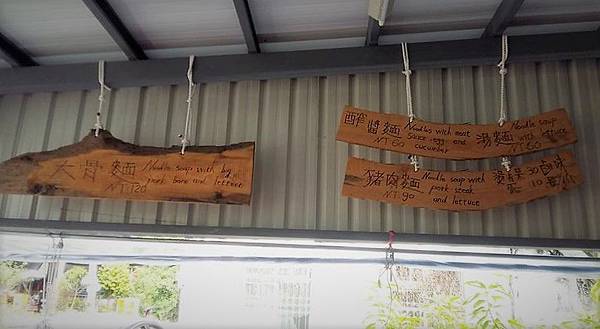 大骨麵 Noodle soup with big
pork bone and lettuce
NT120
酢醬麵 Noodles with meat
sauce egg and
cucumber
NT 60
湯麵 Noodle soup
with lettuce
NT 60
豬肉麵 Noodle soup with
pork steak
and lettuce
NT 90
30
10